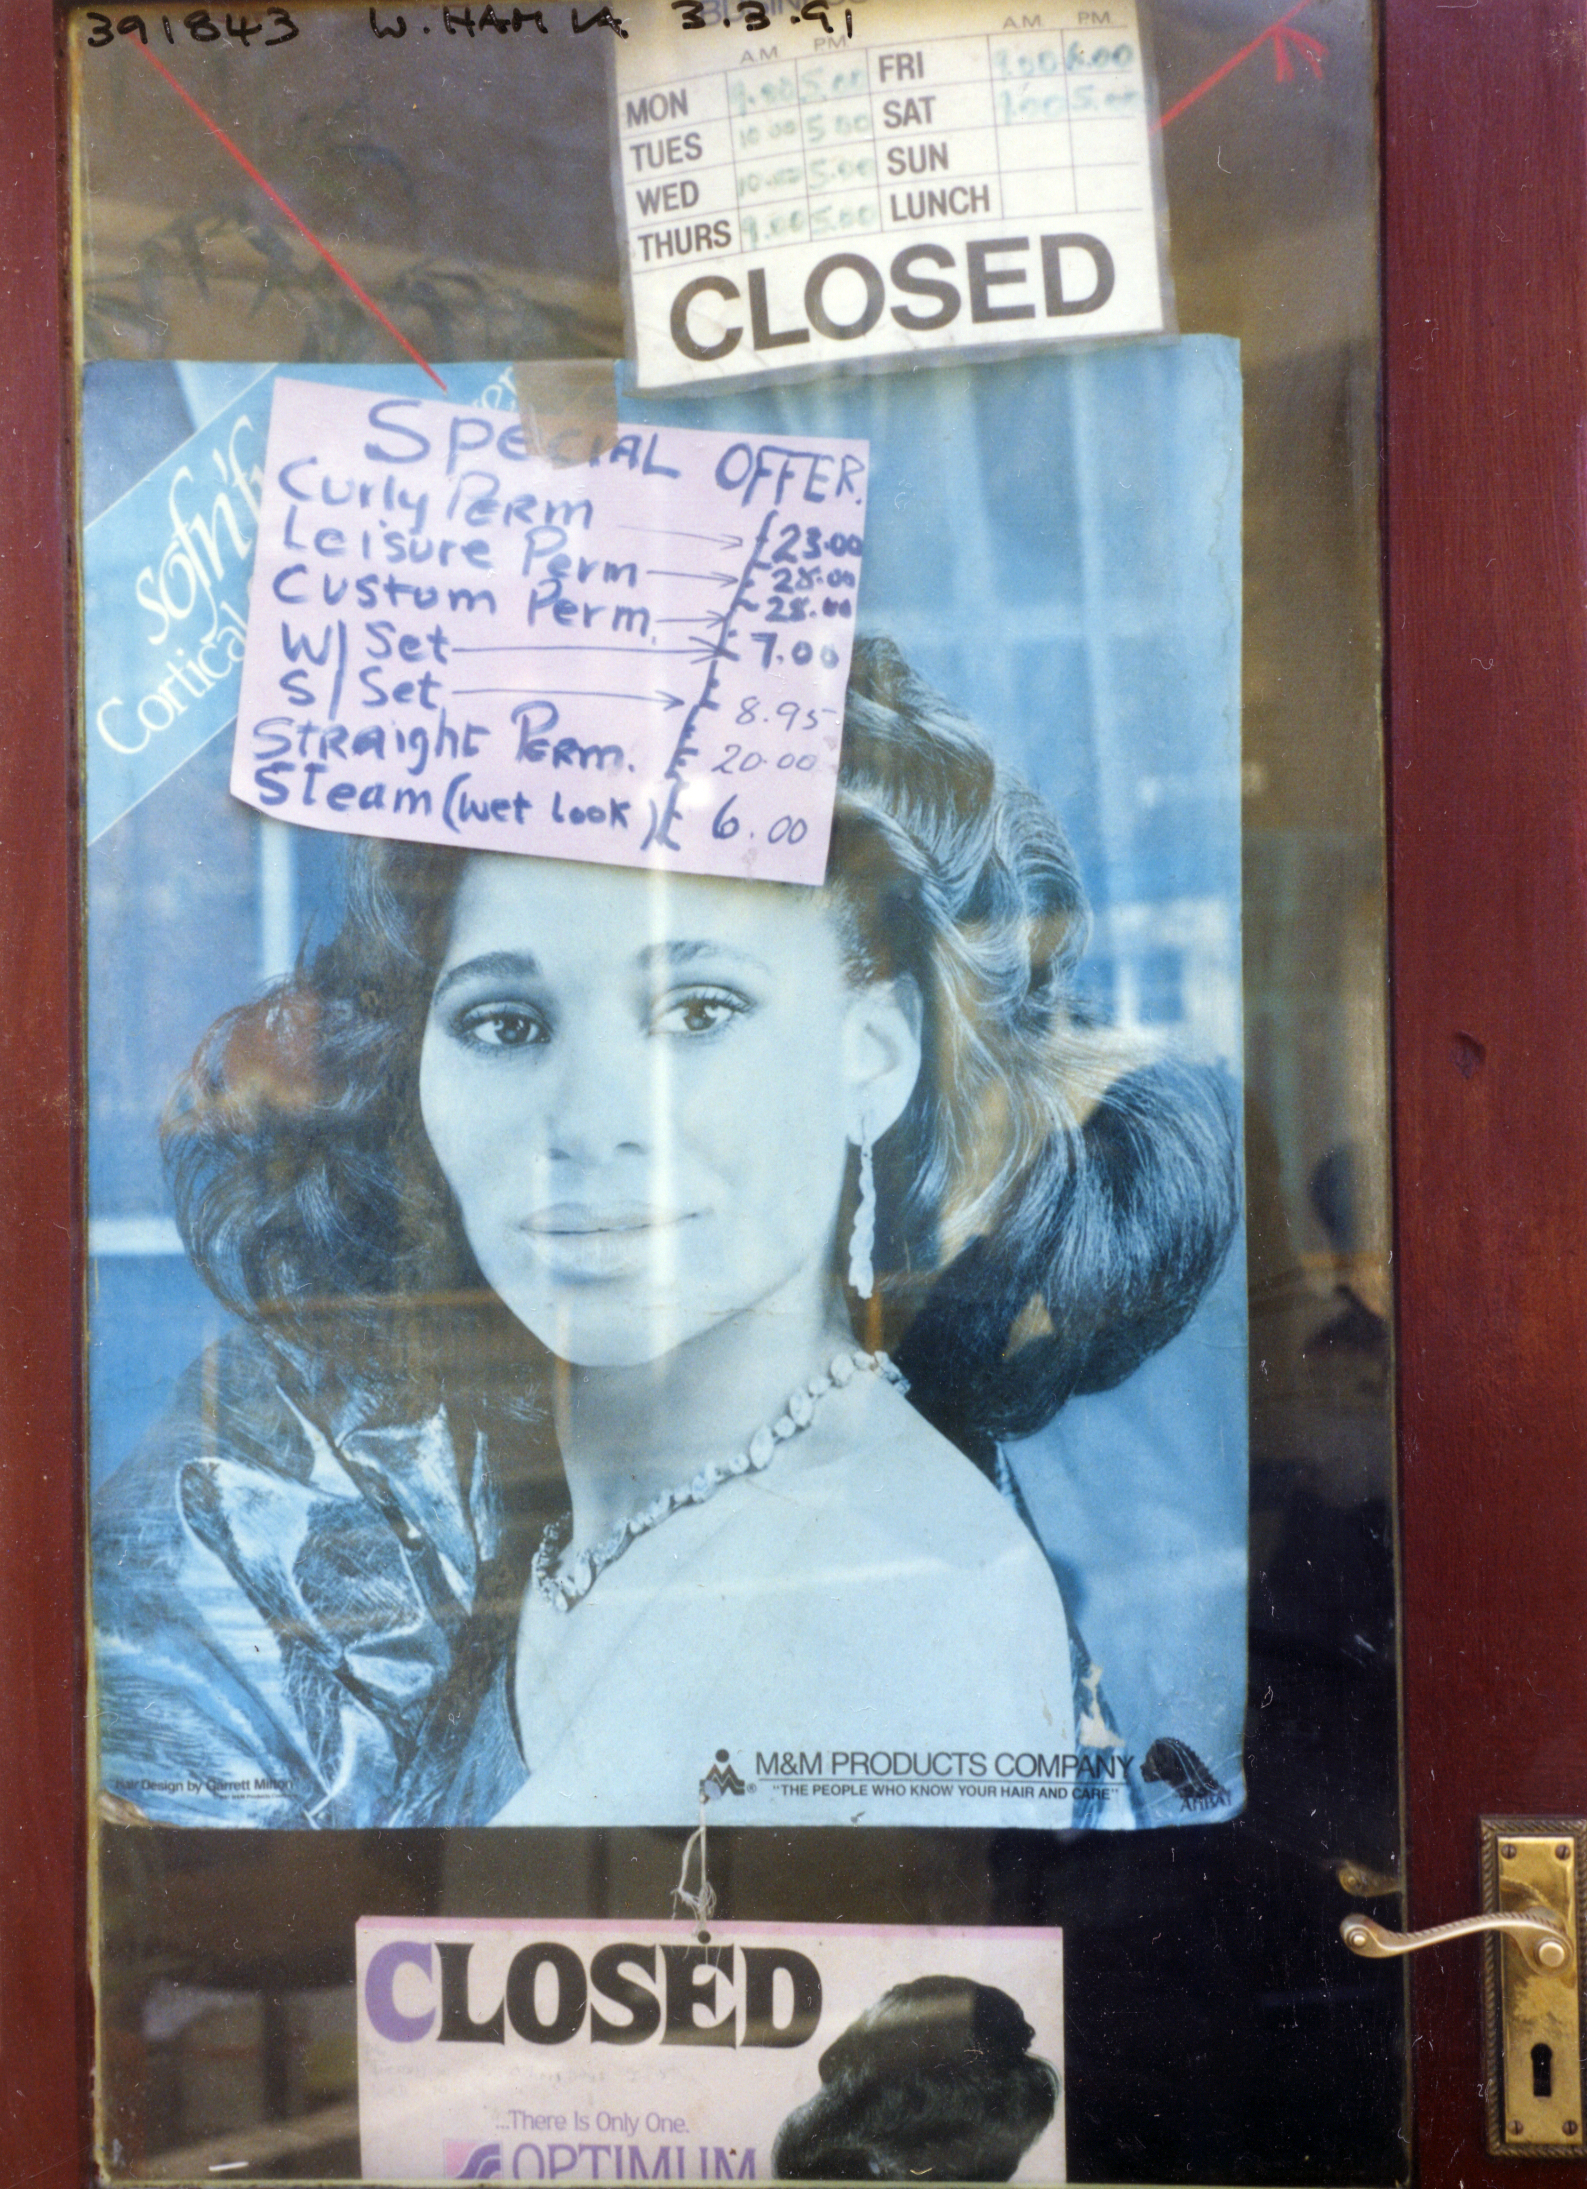 391843 W. HAM LA 3.3.91
A.M. P.M. A.M. P.M.
MON 9.00 5.00 FRI 9.00 6.00
TUES 10.00 5.00 SAT 9.00 5.00
WED 10.00 5.00 SUN
THURS 9.00 5.00 LUNCH
CLOSED
sofn'fr
Cortical
SPECIAL OFFER.
Curly PERM £23.00
Leisure Perm £28.00
Custom Perm. 28.00
W/ Set £7.00
S/ Set £8.95
STRAight PERM. £20.00
STeam (wet look) £6.00
Hair Design by Garrett Milton
M&M PRODUCTS COMPANY
® "THE PEOPLE WHO KNOW YOUR HAIR AND CARE"
CLOSED
...There Is Only One.
OPTIMUM